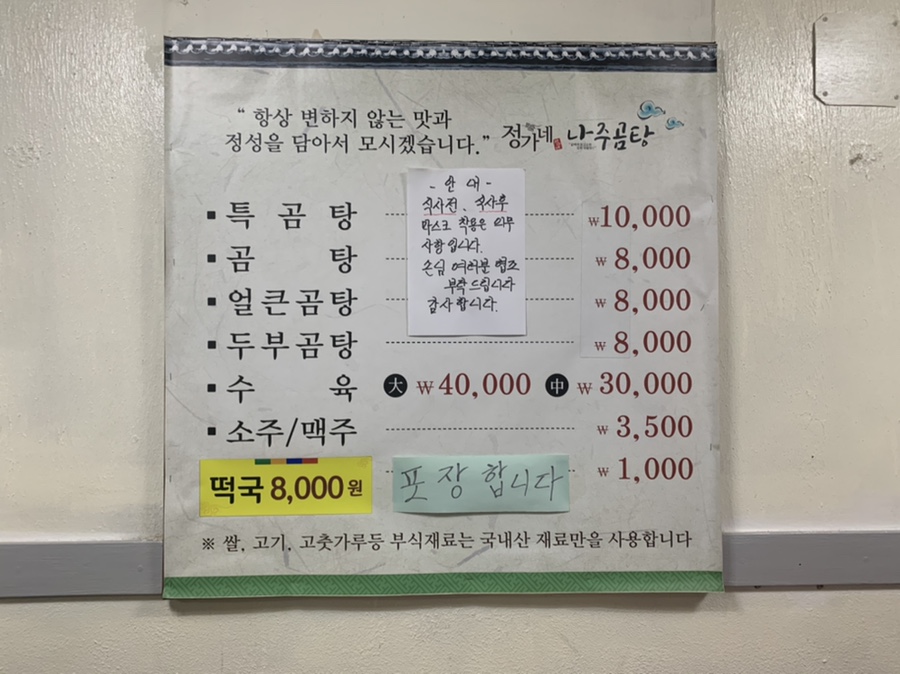 “ 항상 변하지 않는 맛과
정성을 담아서 모시겠습니다.”
정가네 나주곰탕
- 안 내 -
식사전、식사후
마스크 착용은 의무
사항입니다.
손님 여러분 협조
부탁드립니다
감사합니다.
▪ 특곰탕 ₩10,000
▪ 곰탕 ₩ 8,000
▪ 얼큰곰탕 ₩ 8,000
▪ 두부곰탕 ₩ 8,000
▪ 수육 大 ₩ 40,000 中 ₩ 30,000
▪ 소주/맥주 ₩ 3,500
₩ 1,000
떡국 8,000원
포장합니다
※ 쌀, 고기, 고춧가루등 부식재료는 국내산 재료만을 사용합니다